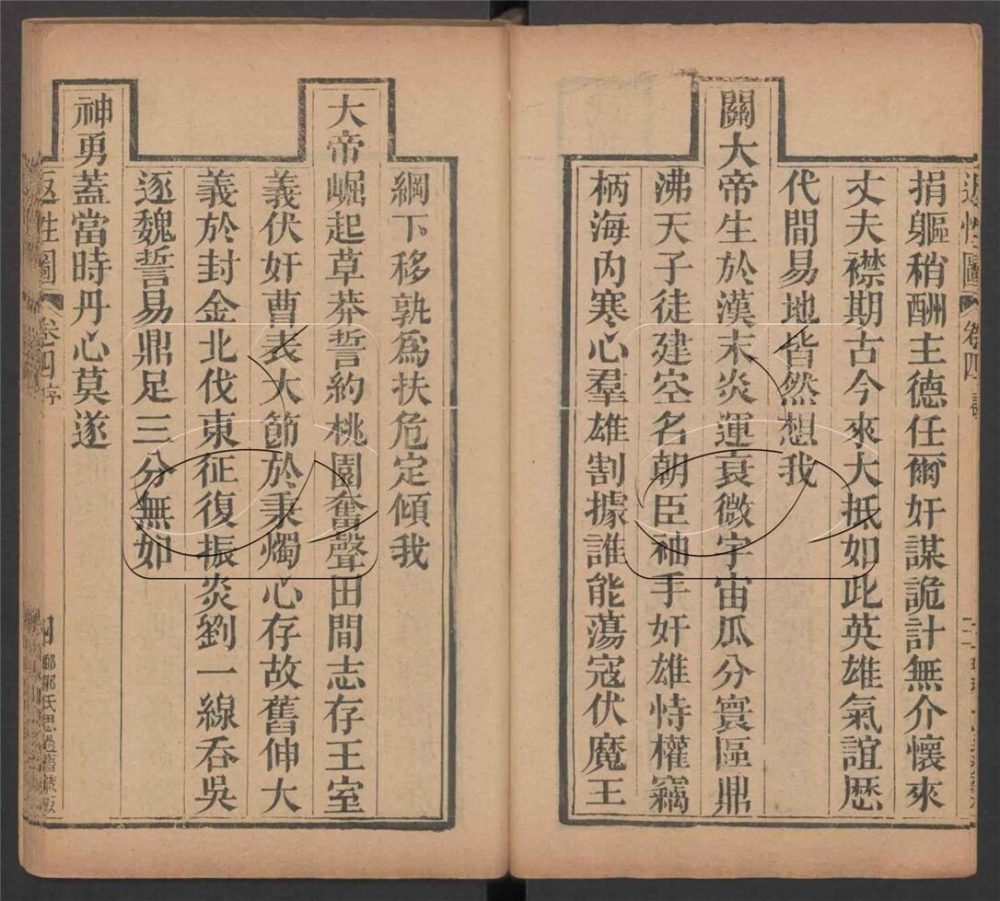 返性圖 卷四
捐軀稍酬主德任爾奸謀詭計無介懷來
丈夫襟期古今來大抵如此英雄氣誼歷
代間易地皆然想我
關大帝生於漢末炎運衰微宇宙瓜分寰區鼎
沸天子徒建空名朝臣袖手奸雄恃權竊
柄海內寒心羣雄割據誰能蕩寇伏魔王
綱下移孰爲扶危定傾我
大帝崛起草莽誓約桃園奮聲田間志存王室
義伏奸曹表大節於秉燭心存故舊伸大
義於封金北伐東征復振炎劉一線吞吳
逐魏誓易鼎足三分無如
神勇蓋當時丹心莫遂
返性圖 卷四 序
氏思過齋藏版